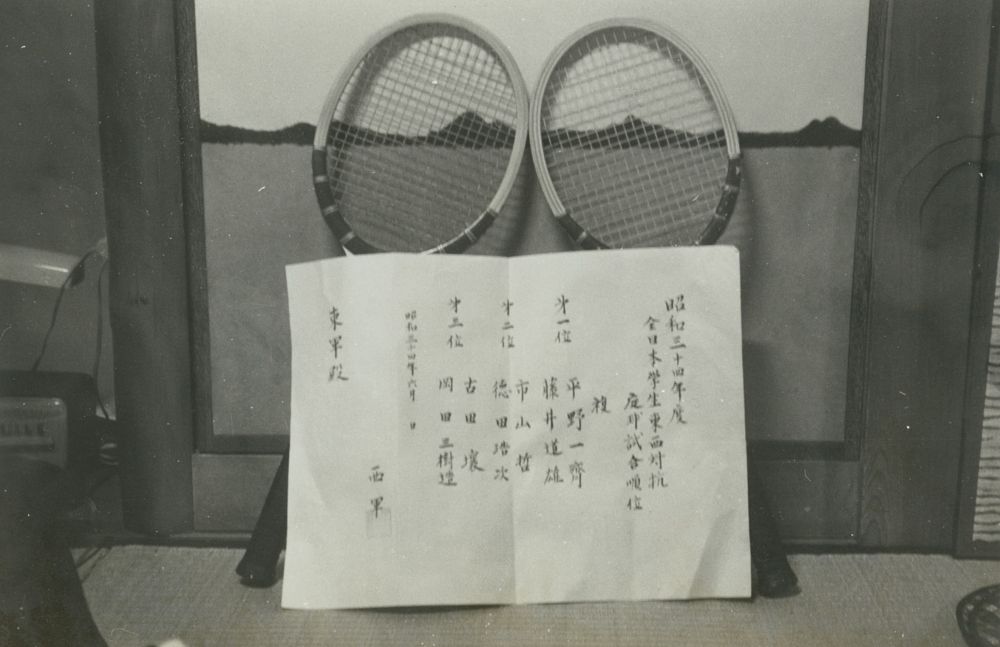 昭和三十四年度
全日本學生東西対抗
庭球試合順位
複
才一位
平野一齊
藤井道雄
才二位
市山哲
徳田浩次
才三位
古田壌
岡田三樹造
昭和三十四年六月 日
西軍
東軍殿